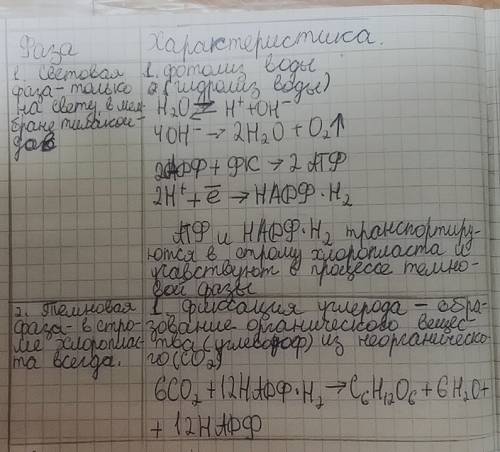 Фаза
Характеристика.
1. Световая
фаза - только
на свету, в мем-
бране тилакои-
дов
1. фотолиз воды
2 (гидролиз воды)
H₂O ⇄ H⁺ + OH⁻
4OH⁻ → 2H₂O + O₂↑
2АДФ + ФК → 2 АТФ
2H⁺ + ē → НАДФ·H₂
АТФ и НАДФ·H₂ транспортиру-
ются в строму хлоропласта и
учавствуют в процессе темно-
вой фазы
2. Темновая
фаза - в стро-
ме хлоропас-
та всегда.
1 - Фиксация углерода - обра-
зование органического вещес-
тва (углеводов) из неорганическо-
го (CO₂)
6CO₂ + 12НАДФ·H₂ → C₆H₁₂O₆ + 6H₂O +
+ 12НАДФ